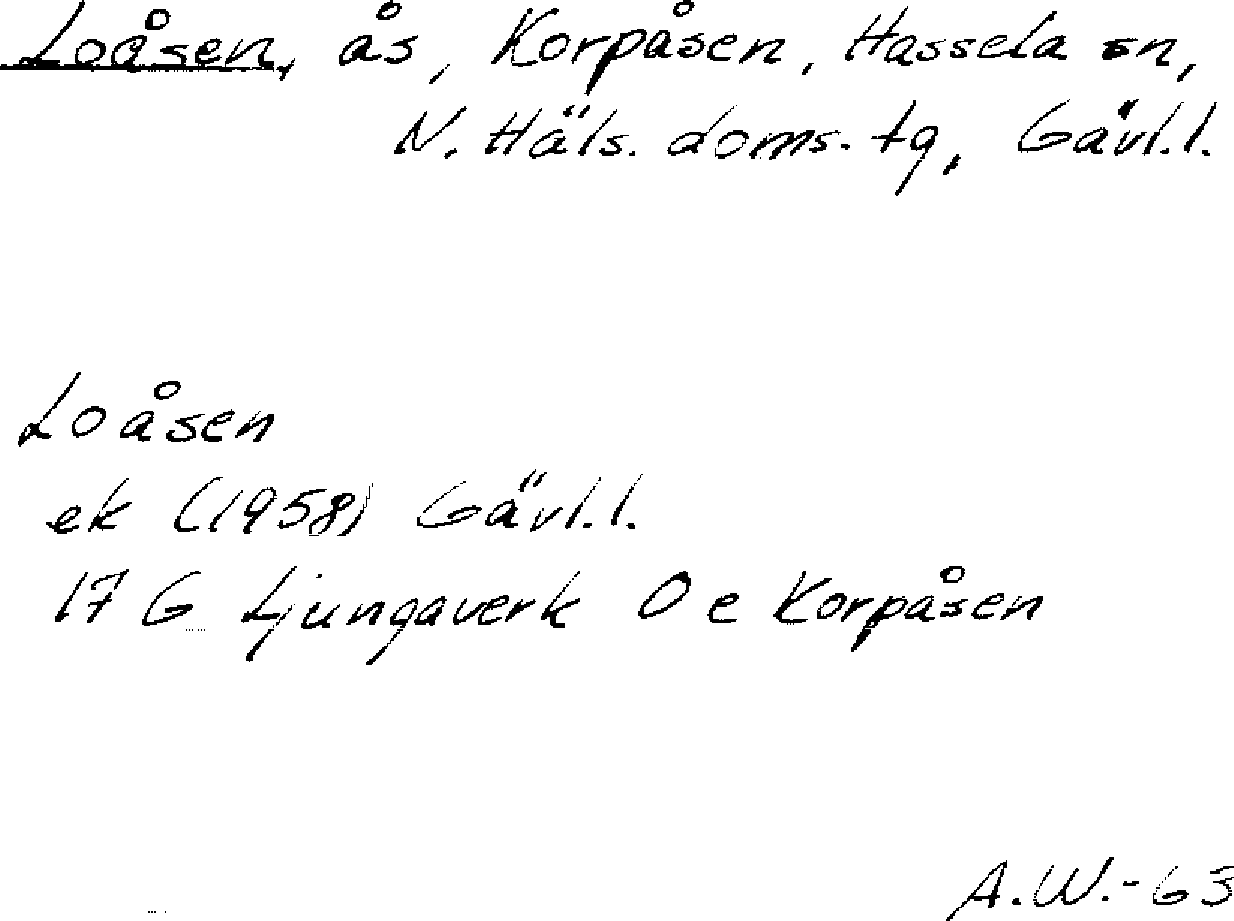 Loåsen, ås, Korpåsen, Hassela sn,
N. Häls. doms. tg, Gävl.l.
Loåsen
ek (1958) Gävl.l.
17 G Ljungaverk O e Korpåsen
A.W.-63